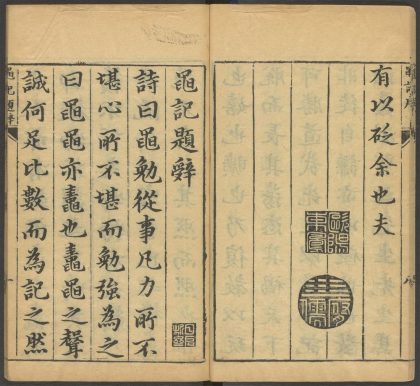 有以砭余也夫
歐陽東鳳
黽記題辭
詩曰黽勉從事凡力所不
堪心所不堪而勉強為之
曰黽黽亦鼃也鼃黽之聲
誠何足比數而為記之然
黽記題辭